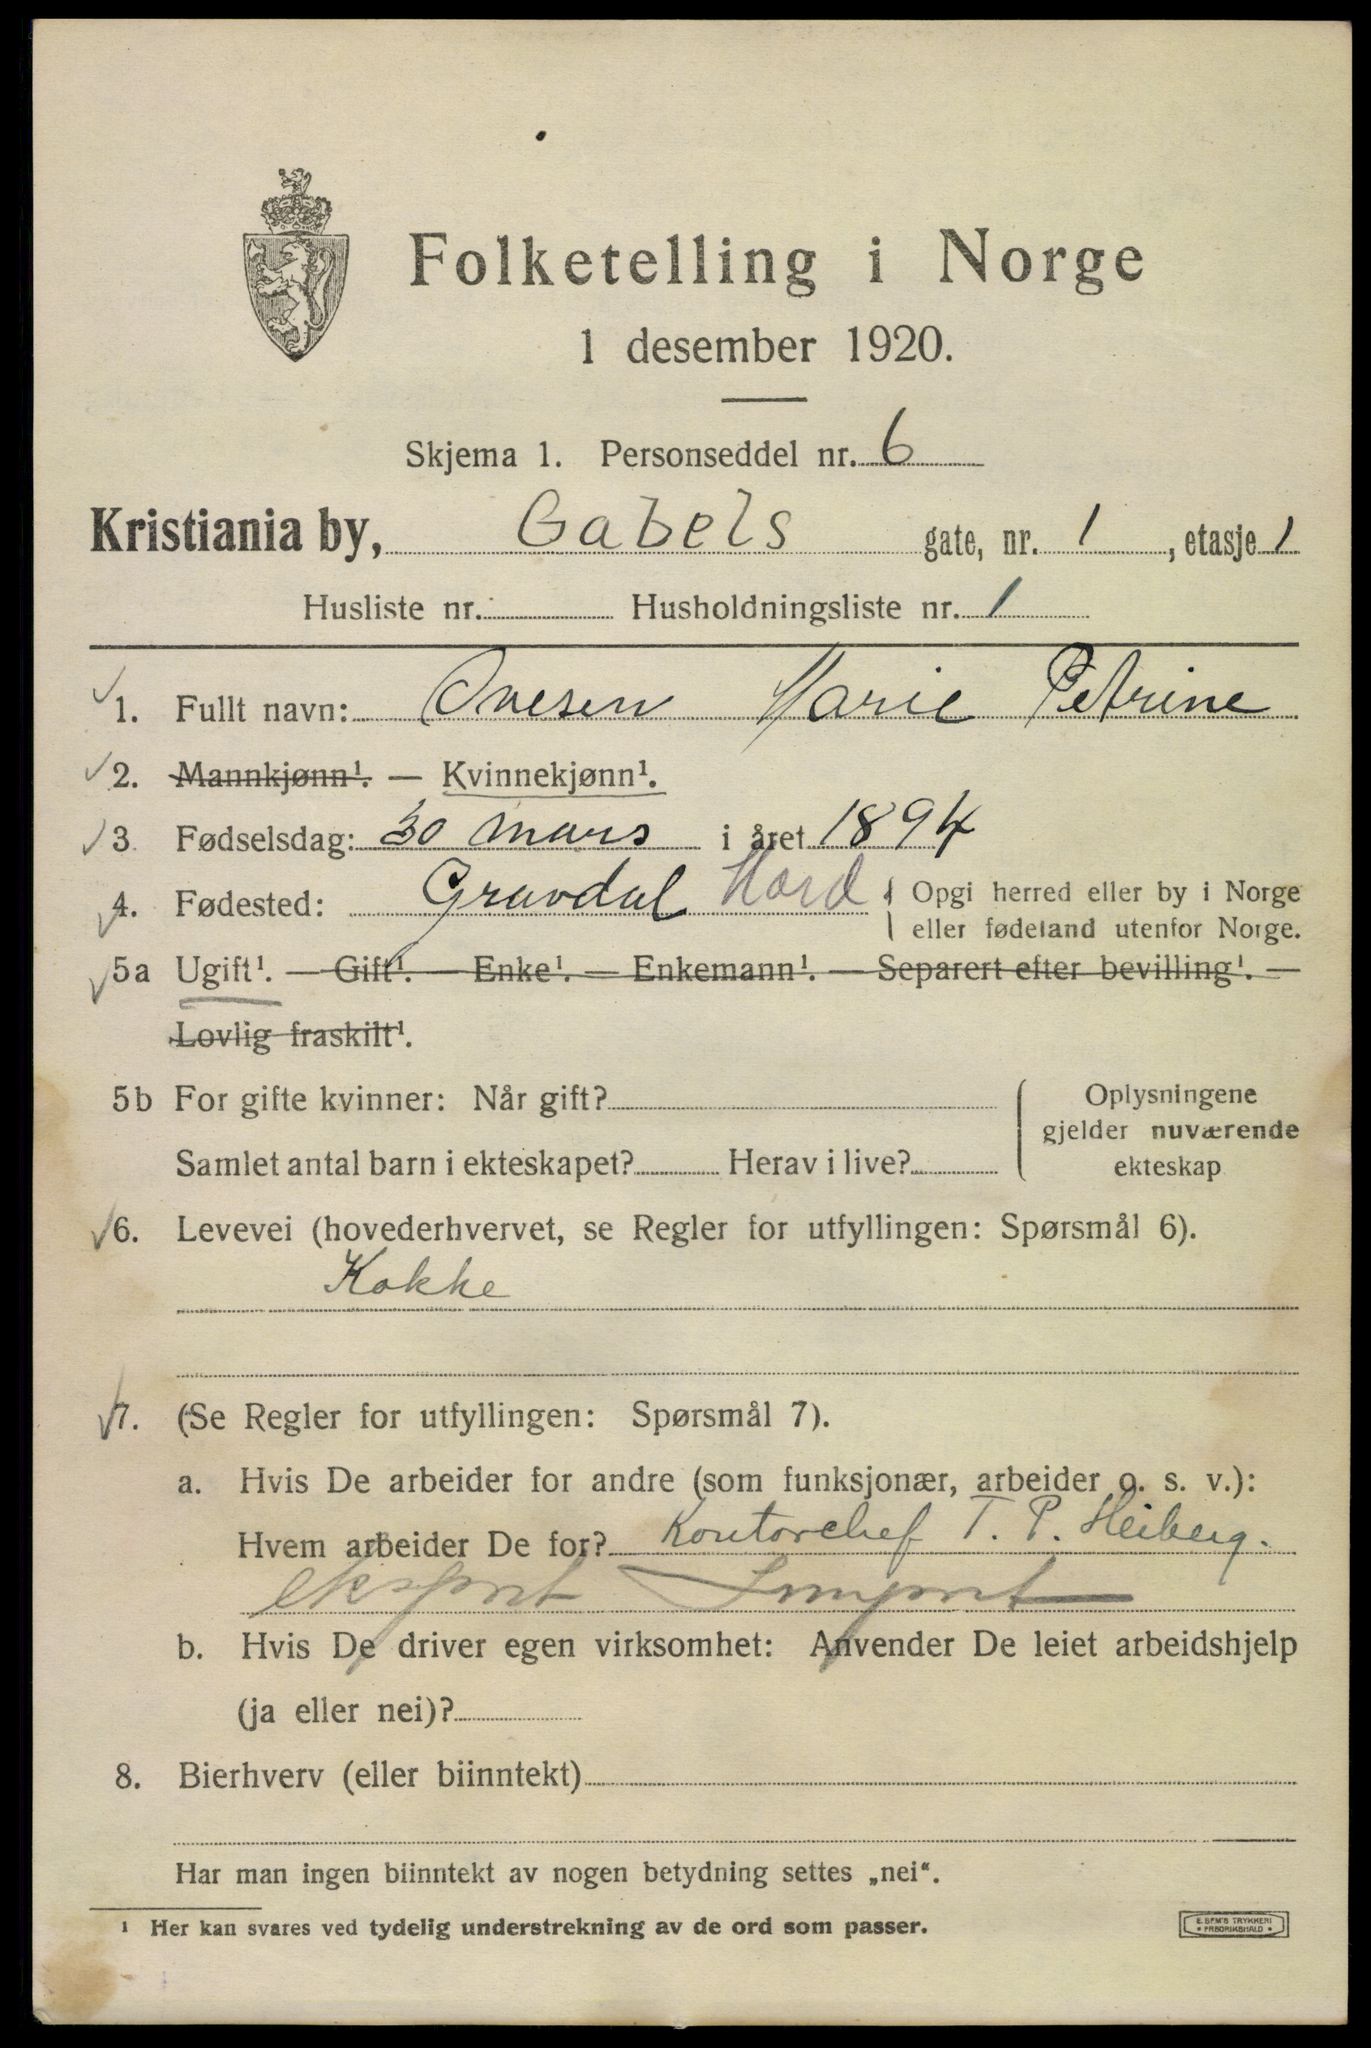 Folketelling i Norge
1 desember 1920.
Skjema 1. Personseddel nr. 6
Kristiania by, Gabels gate, nr. 1, etasje 1
Husliste nr. Husholdningsliste nr. 1
1. Fullt navn: Ovesen Marie Petrine
2. Mannkjønn¹. — Kvinnekjønn¹.
3 Fødselsdag: 30 mars i året 1894
4. Fødested: Gravdal Hord { Opgi herred eller by i Norge
eller fødeland utenfor Norge.
5a Ugift¹. — Gift¹. — Enke¹. — Enkemann¹. — Separert efter bevilling¹. —
Lovlig fraskilt¹.
5b For gifte kvinner: Når gift?
Samlet antal barn i ekteskapet? Herav i live?
Oplysningene
gjelder nuværende
ekteskap
6. Levevei (hovederhvervet, se Regler for utfyllingen: Spørsmål 6).
Kokke
7. (Se Regler for utfyllingen: Spørsmål 7).
a. Hvis De arbeider for andre (som funksjonær, arbeider o. s. v.):
Hvem arbeider De for? Kontorchef T. P. Heiberg.
eksport Import
b. Hvis De driver egen virksomhet: Anvender De leiet arbeidshjelp
(ja eller nei)?
8. Bierhverv (eller biinntekt)
Har man ingen biinntekt av nogen betydning settes „nei“.
¹ Her kan svares ved tydelig understrekning av de ord som passer.
E. SEM'S TRYKKERI
• FREDRIKSHALD •